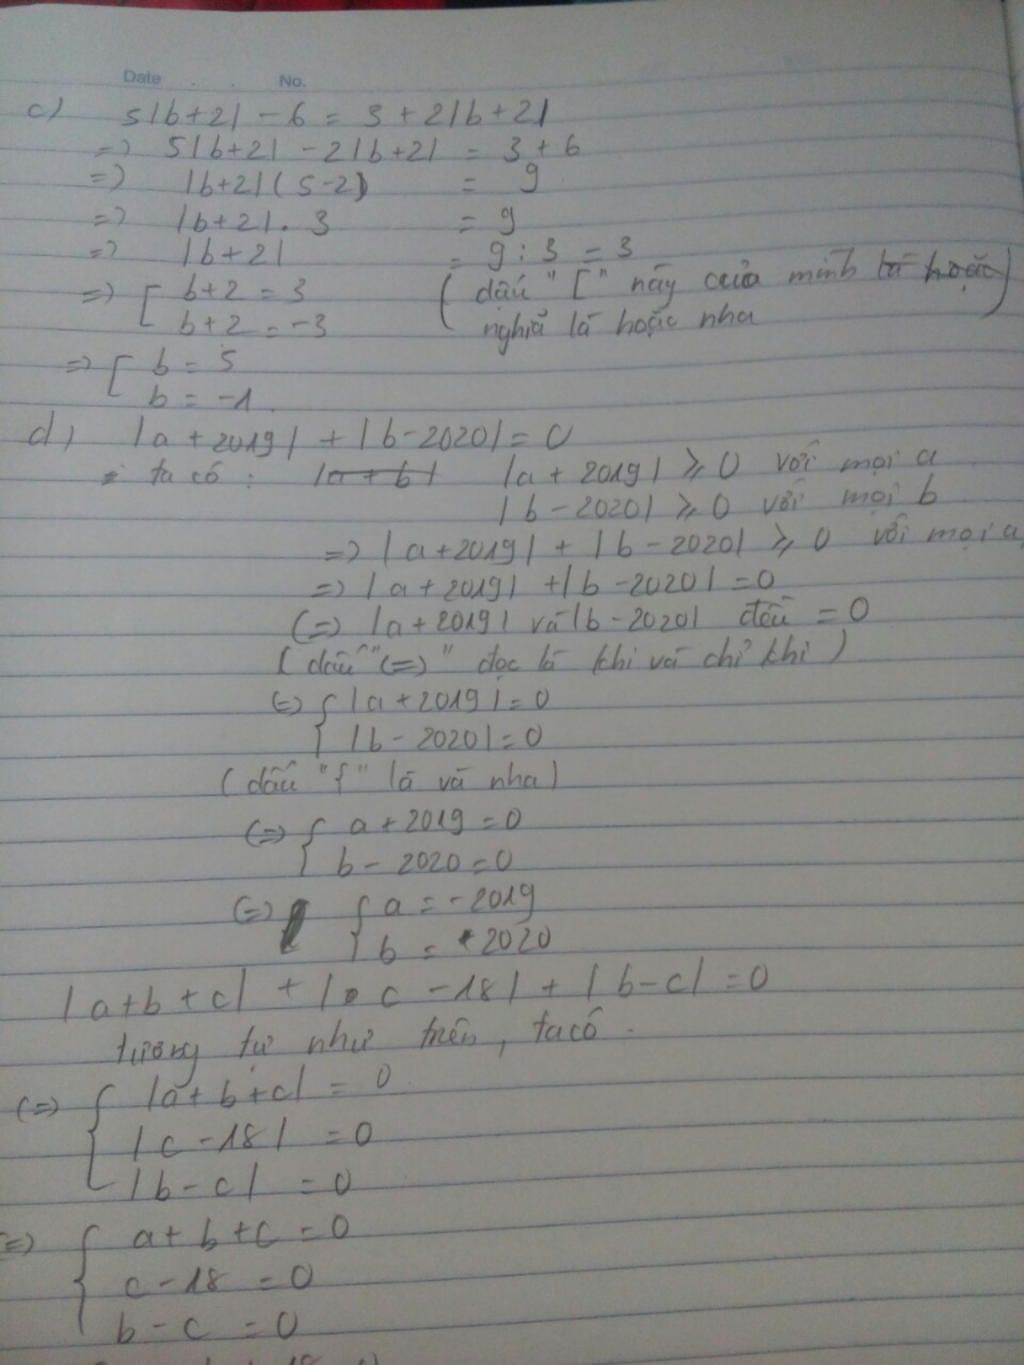 Date . . No.
c) 5|b+2| - 6 = 3 + 2|b+2|
=> 5|b+2| - 2|b+2| = 3 + 6
=> |b+2|(5-2) = 9
=> |b+2|. 3 = 9
=> |b+2| = 9 : 3 = 3
=> [ b+2 = 3 ( dấu "[" này của mình là hoặc )
b+2 = -3 nghĩa là hoặc nha
=> [ b = 5
b = -1
d) |a + 2019| + |b-2020| = 0
ta có : |a + b| |a + 2019| ⩾ 0 với mọi a
|b - 2020| ⩾ 0 với mọi b
=> |a+2019| + |b-2020| ⩾ 0 với mọi a,
=> |a+2019| + |b-2020| = 0
(=) |a+2019| và |b-2020| đều = 0
( dấu "(=)" đọc là khi và chỉ khi )
(=) { |a+2019| = 0
|b-2020| = 0
( dấu "{" là và nha )
(=) { a+2019 = 0
b - 2020 = 0
(=) { a = -2019
b = 2020
|a+b+c| + |c-18| + |b-c| = 0
tương tự như trên, ta có .
(=) { |a+b+c| = 0
|c-18| = 0
|b-c| = 0
(=) { a+b+c = 0
c-18 = 0
b-c = 0